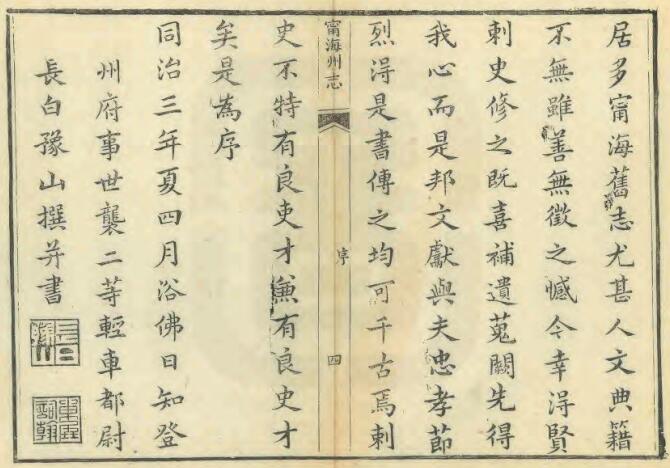 居多甯海舊志尤甚人文典籍
不無雖善無徵之憾今幸得賢
刺史修之既喜補遺蒐闕先得
我心而是邦文獻與夫忠孝節
烈淂是書傳之均可千古焉刺
甯海州志
序
四
史不特有良吏才兼有良史才
矣是為序
同治三年夏四月浴佛日知登
州府事世襲二等輕車都尉
長白豫山撰并書